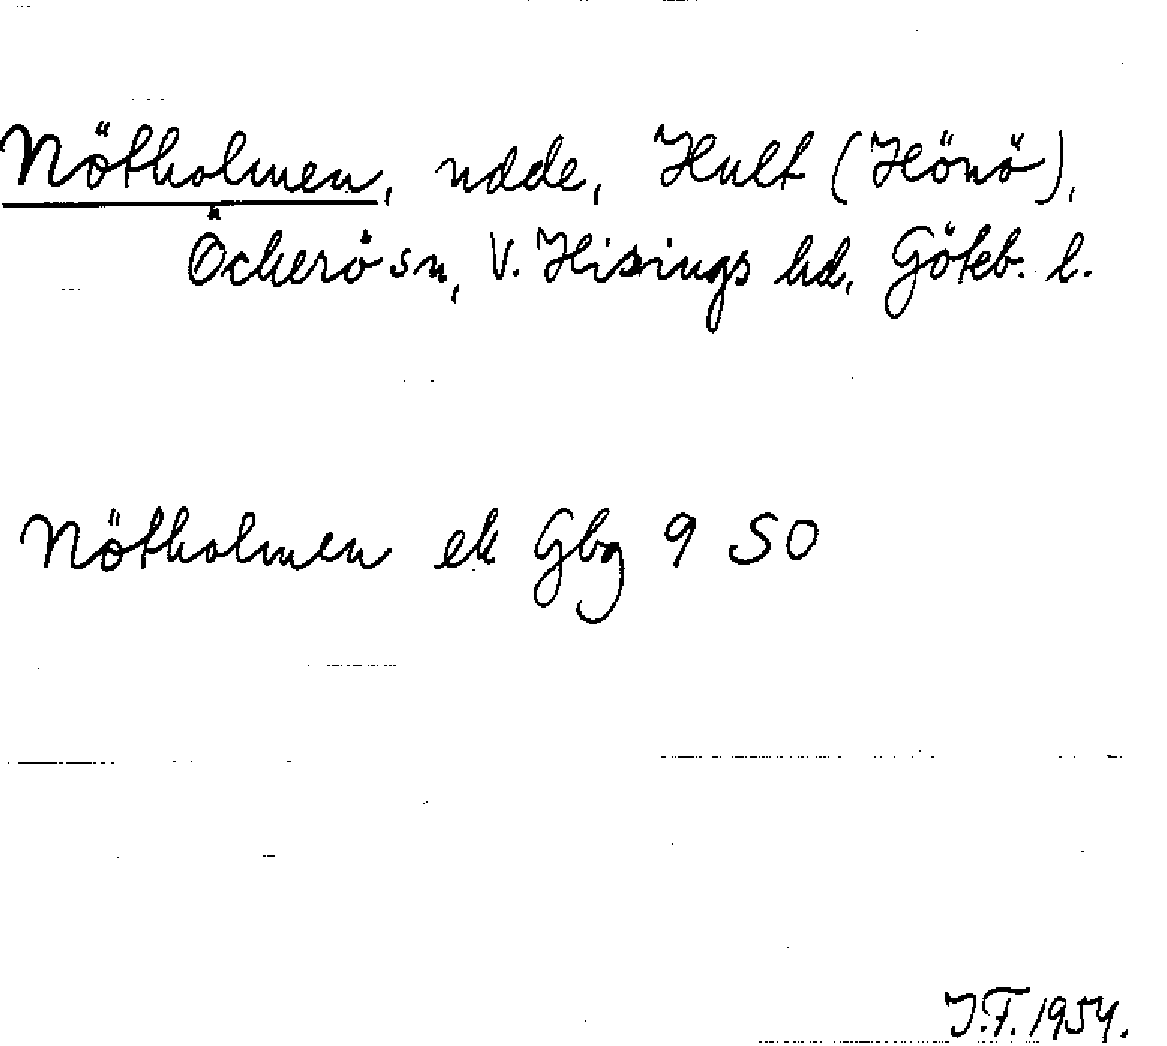 Nötholmen, udde, Hult (Hönö),
Öckerö sn, V. Hisings hd, Göteb. l.
Nötholmen ek Gbg 9 SO
J.F. 1954.